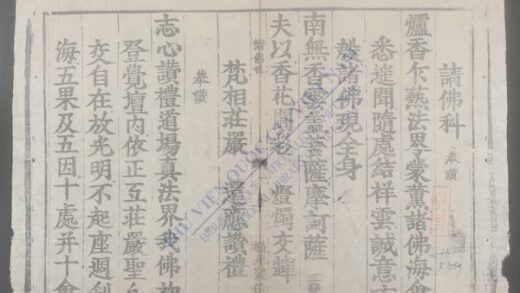 請佛科 奉讚
爐香乍爇法界蒙薰諸佛海會
悉遙聞隨處結祥雲誠意方
殷諸佛現全身
南無香雲蓋菩薩摩訶薩
請佛科
夫以香花閗彩 燈燭交輝
梵相莊嚴 還應讚禮
奉讚
志心讚禮道場真法界我佛
登覺壇內依正互莊嚴聖
交自在放光明不起座週
海五果及五因十處并十會